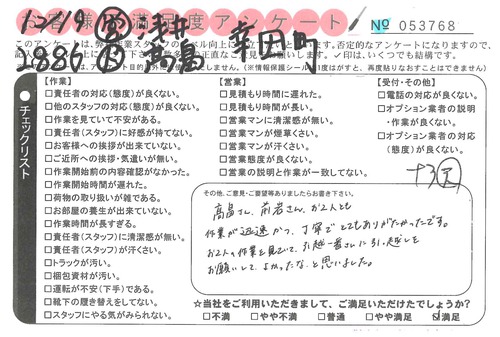 お客様満足度アンケート
№ 053768
12/19 営 浅井 幸田町
2886 高畠
このアンケートは、
否定的なアンケートになりますので、
☑印は、いくつでも結構です。
(※情報保護シール1度はがすと、再度貼りなおすことはできません)
チェックリスト
【作業】
□責任者の対応(態度)が良くない。
□他のスタッフの対応(態度)が良くない。
□作業を見ていて不安がある。
□責任者(スタッフ)に好感が持てない。
□お客様への挨拶が出来ていない。
□ご近所への挨拶・気遣いが無い。
□作業開始前の内容確認がなかった。
□作業開始時間が遅れた。
□荷物の取り扱いが雑である。
□お部屋の養生が出来ていない。
□作業時間が長すぎる。
□責任者(スタッフ)に清潔感が無い。
□責任者(スタッフ)が汗くさい。
□トラックが汚い。
□梱包資材が汚い。
□運転が不安(下手)である。
□靴下の履き替えをしてない。
□スタッフにやる気がみられない。
【営業】
□見積もり時間に遅れた。
□見積もり時間が長い。
□営業マンに清潔感が無い。
□営業マンが煙草くさい。
□営業マンが汗くさい。
□営業態度が良くない。
□営業の説明と作業が一致してない。
【受付・その他】
□電話の対応が良くない。
□オプション業者の説明
・作業が良くない。
□オプション業者の対応
(態度)が良くない。
その他、ご意見・ご要望等ありましたらお書き下さい。
高畠さん、前岩さん、お2人とも
作業が迅速かつ、丁寧でとてもありがたかったです。
お2人の作業を見ていて、引越一番さんに引っ越しを
お願いして、よかったな、と思いました。
☆当社をご利用いただきまして、ご満足いただけたでしょうか?
□不満 □やや不満 □普通 □やや満足 ☑満足